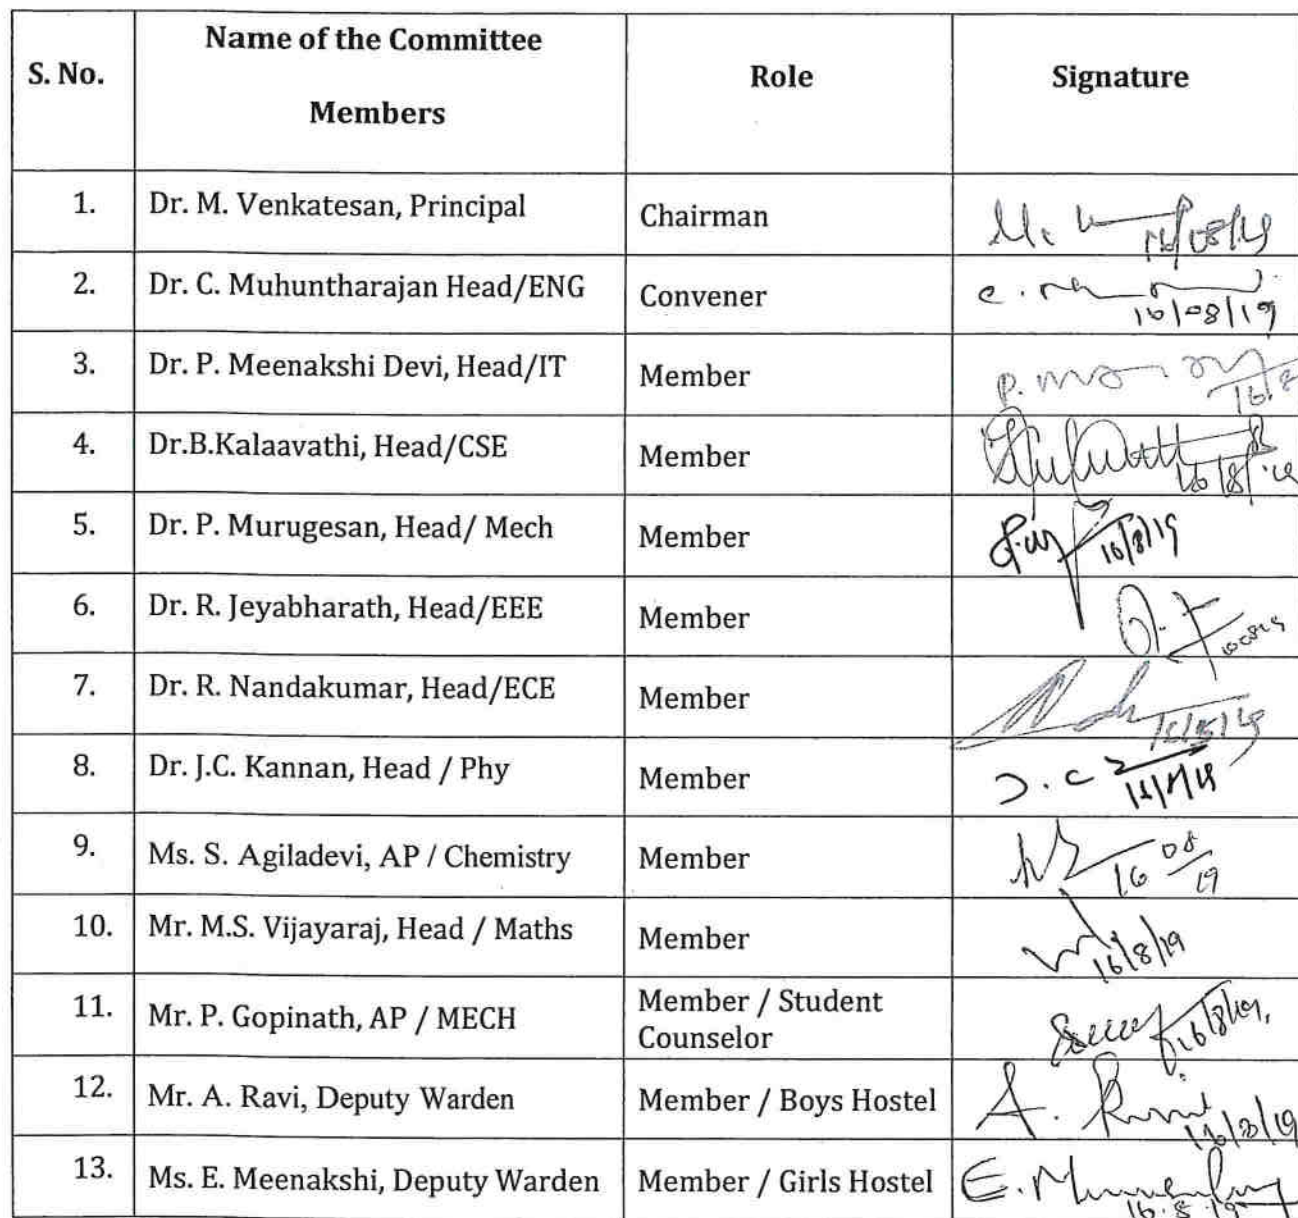 S. No. Name of the Committee Members Role Signature
1. Dr. M. Venkatesan, Principal Chairman 16/08/19
2. Dr. C. Muhuntharajan Head/ENG Convener 16/08/19
3. Dr. P. Meenakshi Devi, Head/IT Member 16/8
4. Dr.B.Kalaavathi, Head/CSE Member 16/8/19
5. Dr. P. Murugesan, Head/ Mech Member 16/8/19
6. Dr. R. Jeyabharath, Head/EEE Member
7. Dr. R. Nandakumar, Head/ECE Member 16/8/19
8. Dr. J.C. Kannan, Head / Phy Member J.C 16/8/19
9. Ms. S. Agiladevi, AP / Chemistry Member 16/08/19
10. Mr. M.S. Vijayaraj, Head / Maths Member 16/8/19
11. Mr. P. Gopinath, AP / MECH Member / Student
Counselor 16/8/19
12. Mr. A. Ravi, Deputy Warden Member / Boys Hostel A. Ravi 16/8/19
13. Ms. E. Meenakshi, Deputy Warden Member / Girls Hostel 16.8.19